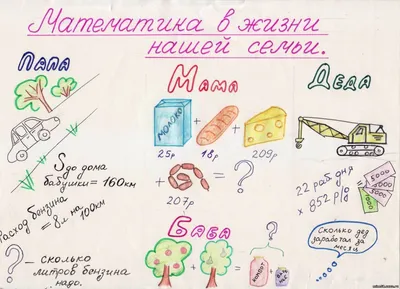 Математика в жизни
нашей семьи.
ПАПА
Мама
ДЕДА
МОЛОКО
25р
18р
209р
207р
S до дома
бабушки = 160км
Расход бензина
= 8л на 100км
? — сколько
литров бензина
надо.
22 раб. дня
× 852 р/д
5000
5000
1000
Сколько дед
заработал за
БАБА